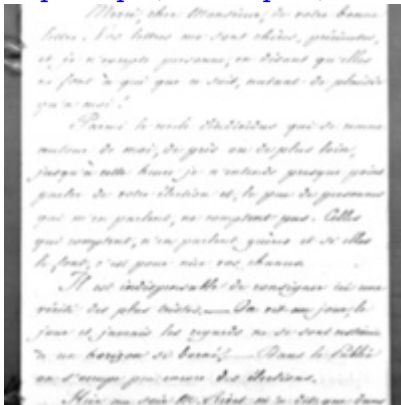 Merci, cher Monsieur, de votre bonne
lettre. Vos lettres me sont chères, précieuses,
et je n'excepte personne, en disant qu'elles
ne font à qui que ce soit, autant de plaisir
qu'à moi !
Parmi le cercle d'individus qui se meut
autour de moi, de près ou de plus loin,
jusqu'à cette heure je n'entends presque point
parler de votre élection et, le peu de personnes
qui m'en parlent, ne comptent pas. Celles
qui comptent, n'en parlent guères et si elles
le font, c'est pour nier vos chances.
Il est indispensable de consigner ici une
vérité des plus tristes. — On vit au jour le
jour et jamais les regards ne se sont
à un horizon si borné ! — Dans le public
on s'occupe peu encore des élections.
Hier au soir M. me dans